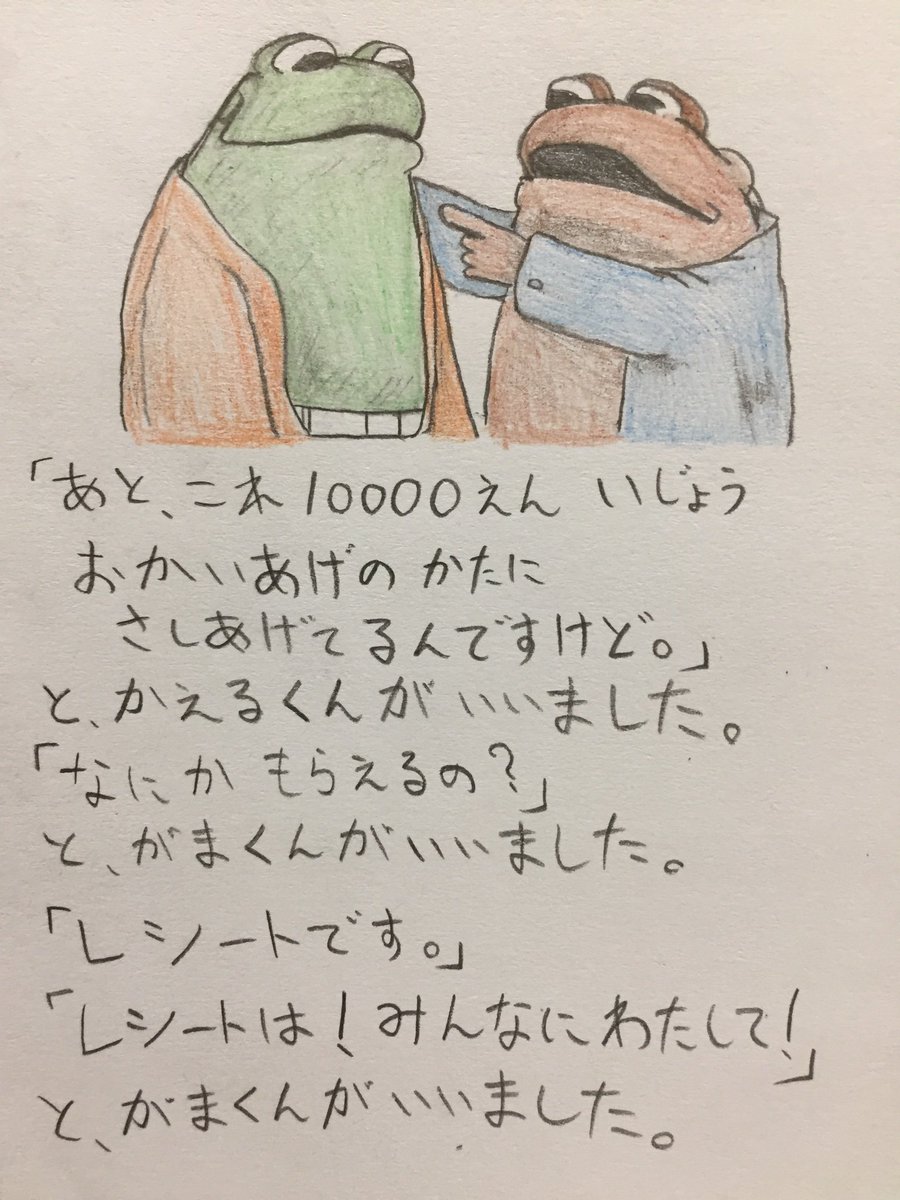 「あと、これ10000えん いじょう
おかいあげの かたに
さしあげてるんですけど。」
と、かえるくんがいいました。
「なにか もらえるの？」
と、がまくんがいいました。
「レシートです。」
「レシートは！みんなにわたして！」
と、がまくんがいいました。